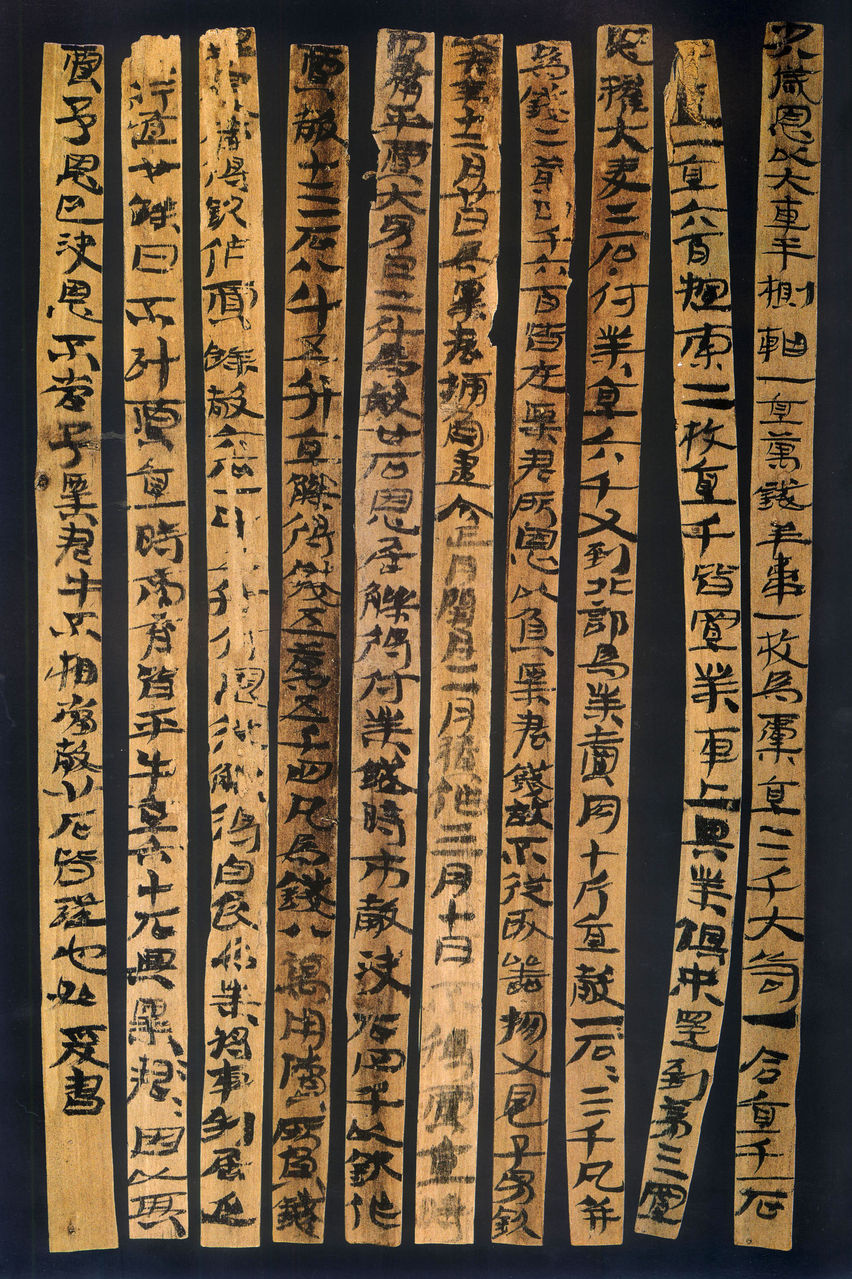 恩以大車半𣝛軸一直萬錢羊韋一枚為橐直三千大笥一合直千一石
去盧一直六百𣝛索二枚直千皆置業車上與業俱來還到第三置
恩糴大麥二石付業直六千又到北部為業賣肉十斤直穀一石石三千凡并
為錢二萬四千六百皆在粟君所恩以負粟君錢故不從取器物又恩子男欽
以去年十二月廿日為粟君捕魚盡今正月閏月二月積作三月十日不得賈直時
市庸平賈大男日二斗為穀廿石恩居觻得付業錢時市穀決石四千以欽作
賈穀十三石八斗五升直觻得錢五萬五千四凡為錢八萬用償所負錢
畢恩當得欽作賈餘穀六石一斗五升付恩從觻得自食為業將車到居延
行道廿餘日不計賈直時商育皆平牛直六十石與粟君粟君因以其
賈予恩已決恩不當予粟君牛不相當穀廿石皆證也如爰書